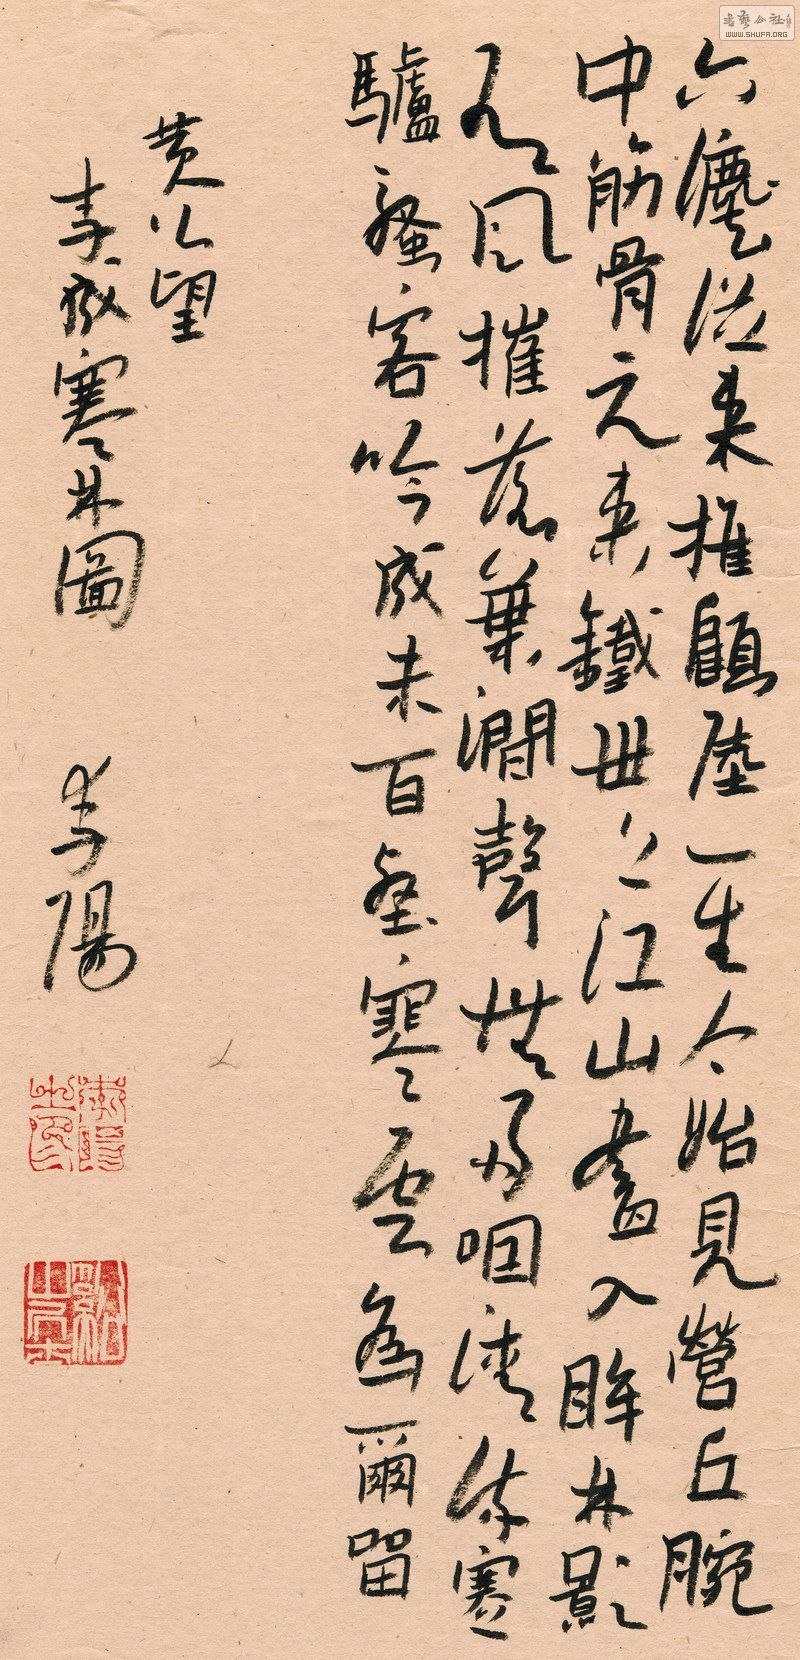 書藝公社
WWW.SHUFA.ORG
六灋從来推顧陸一生今始見營丘腕
中筋骨元来鐵世上江山盡入眸林影
有風摧落葉澗聲無咽溪流寒
驢騷客吟成未百壑寒雲為爾留
黄公望
李成寒林圖 李陽